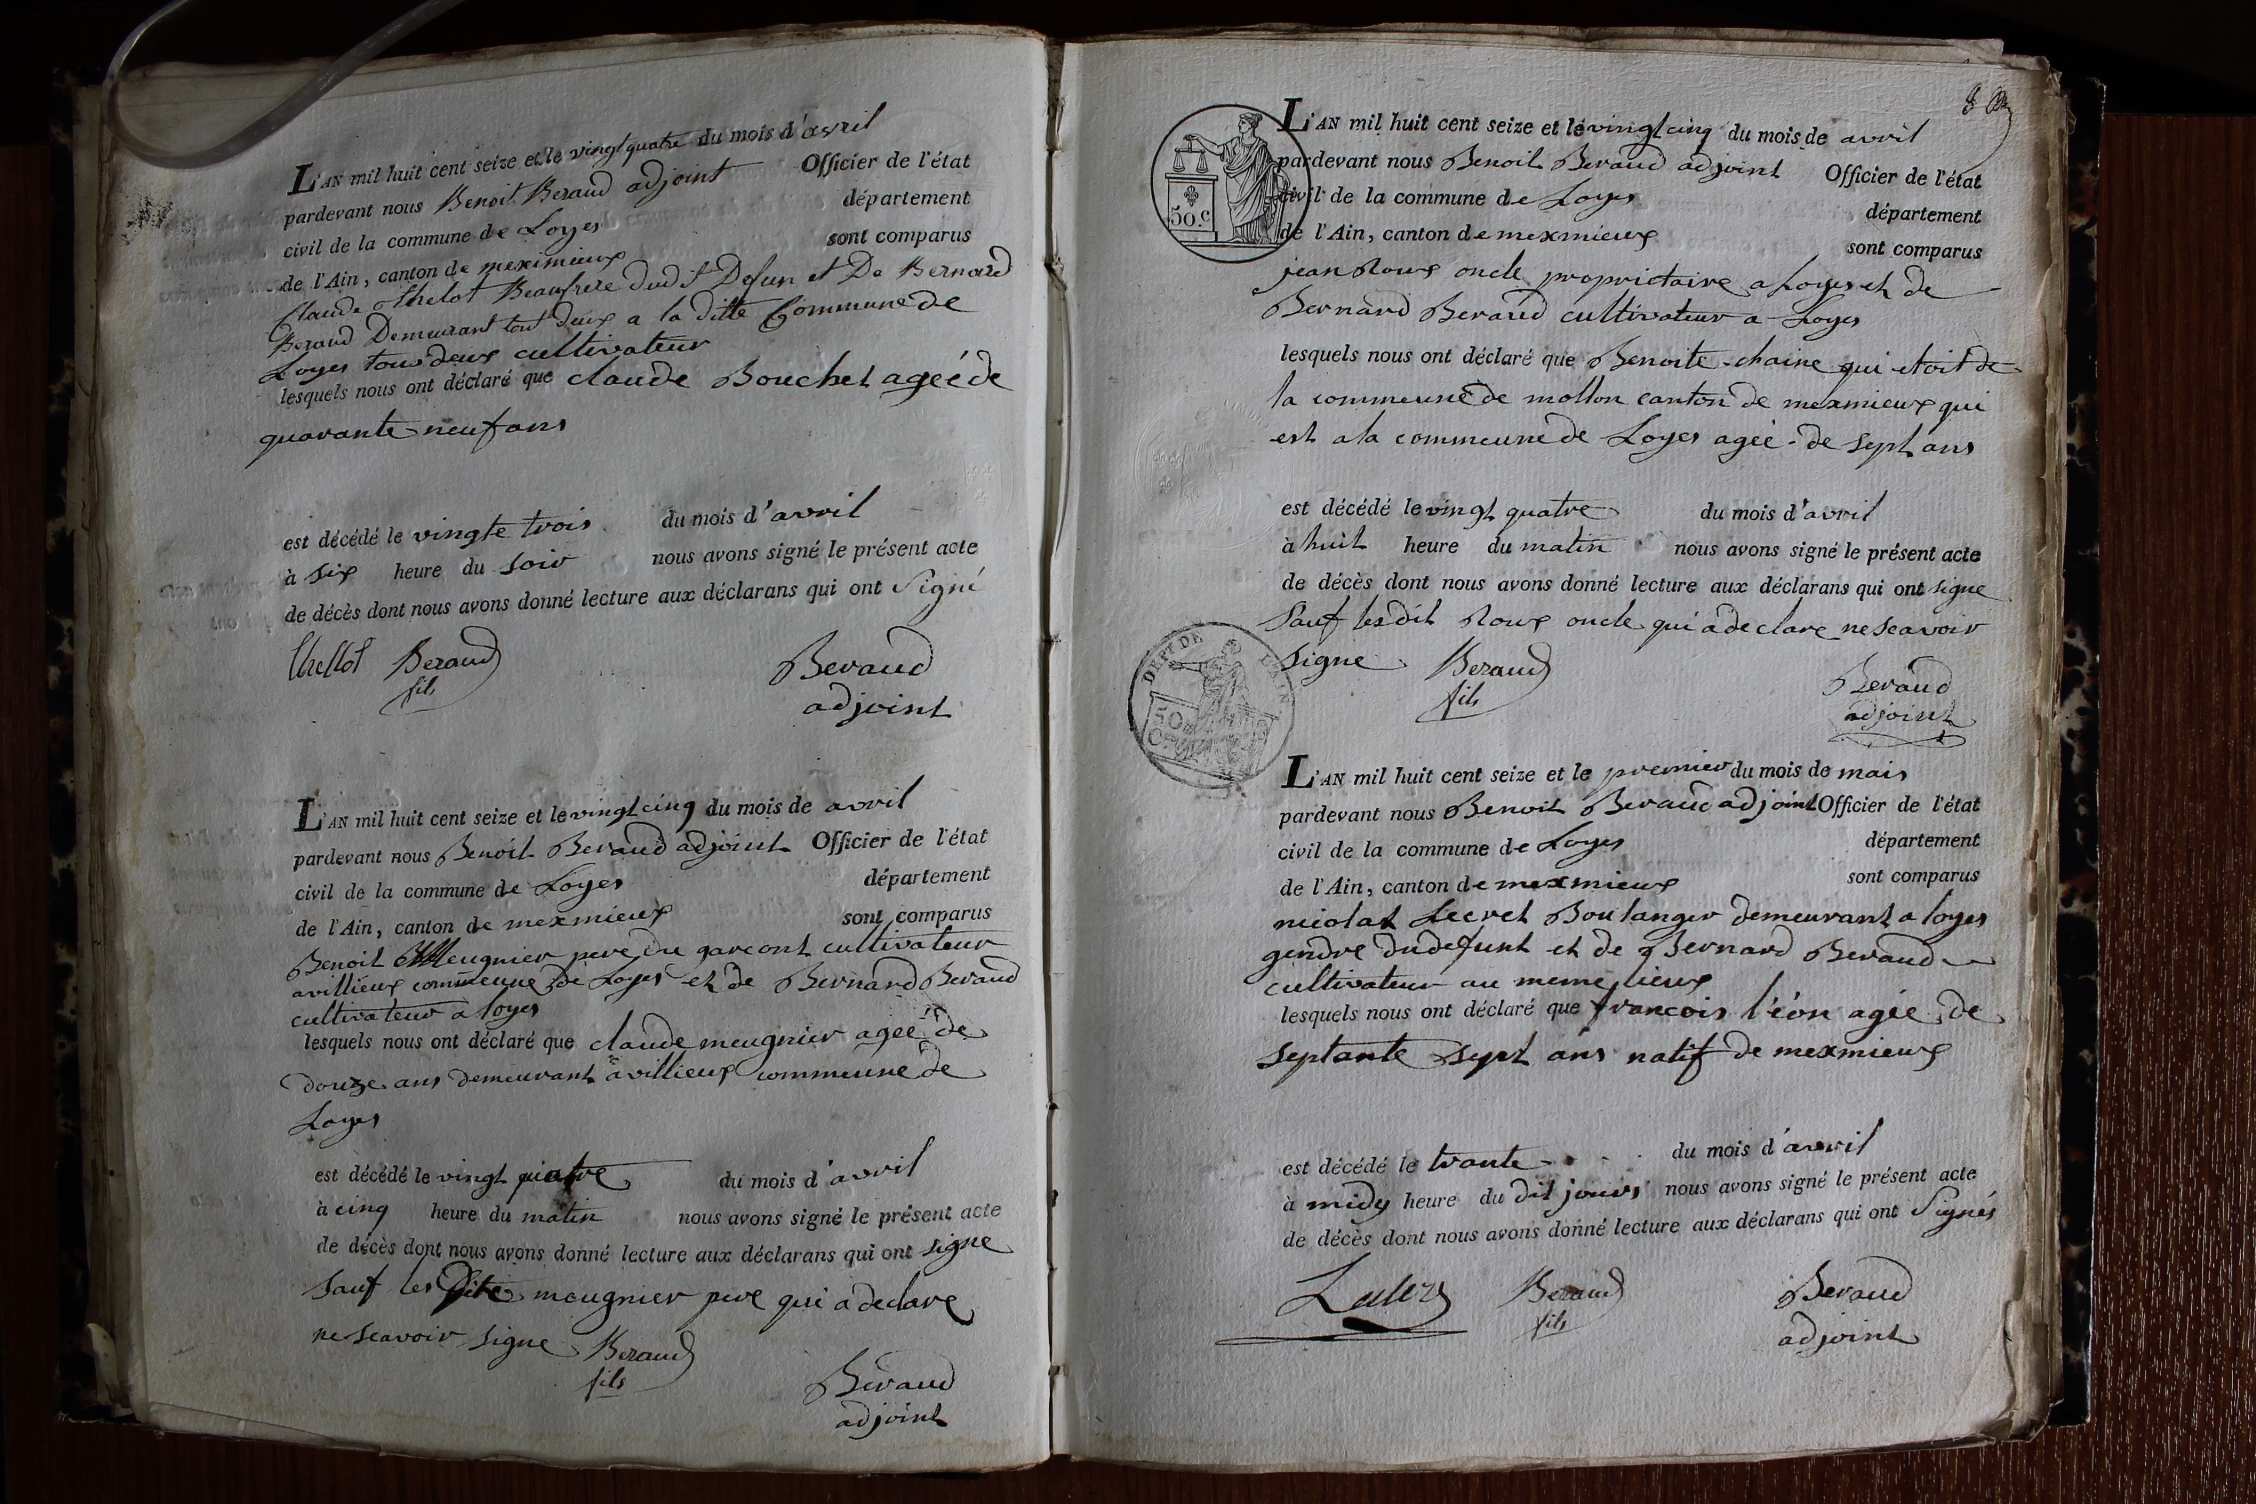 L'AN mil huit cent seize et le vingt quatre du mois d'avril
pardevant nous Benoit Beraud adjoint Officier de l'état
civil de la commune de Loyes département
de l'Ain, canton de meximieux sont comparus
Claude thelot Beaufrere dud't Defun et De Bernard
Beraud Demeurant tout deux a la ditte Commune de
Loyes tous deux cultivateur
lesquels nous ont déclaré que claude Bouchet ageé de
quarante neuf ans
est décédé le vingte trois du mois d'avril
à six heure du soir nous avons signé le présent acte
de décès dont nous avons donné lecture aux déclarans qui ont Signé
thellot Beraud Beraud
fils adjoint
L'AN mil huit cent seize et le vingt cinq du mois de avril
pardevant nous Benoit Beraud adjoint Officier de l'état
civil de la commune de Loyes département
de l'Ain, canton de mexmieux sont comparus
Benoit Meugnier pere du garcont cultivateur
avillieux commeune de Loyes et de Bernard Beraud
cultivateur a loyes
lesquels nous ont déclaré que claude meugnier ageé de
douze ans demeurant a villieux commeune de
Loyes
est décédé le vingt quatre du mois d'avril
à cinq heure du matin nous avons signé le présent acte
de décès dont nous avons donné lecture aux déclarans qui ont signe
Sauf les Dite meugnier pere qui a declare
ne Scavoir signe Beraud
fils
Beraud
adjoint
8
L'AN mil huit cent seize et le vingt cinq du mois de avril
pardevant nous Benoit Beraud adjoint Officier de l'état
civil de la commune de Loyes département
de l'Ain, canton de mexmieux sont comparus
50 c.
jean Roux oncle proprietaire a Loyes et de
Bernard Beraud cultivateur a Loyes
lesquels nous ont déclaré que Benoite chaine qui etoit de
la commeune de mollon canton de mexmieux qui
est a la commeune de Loyes ageé de Sept ans
est décédé le vingt quatre du mois d'avril
à huit heure du matin nous avons signé le présent acte
de décès dont nous avons donné lecture aux déclarans qui ont signe
Sauf les dit Roux oncle qui a declare ne Scavoir
signe Beraud Beraud
fils adjoint
DÉPT DE L'AIN
50
L'AN mil huit cent seize et le premier du mois de mais
pardevant nous Benoit Beraud adjoint Officier de l'état
civil de la commune de Loyes département
de l'Ain, canton de mexmieux sont comparus
nicolas Lecret Boulanger demeurant a loyes
gendre dudefunt et de Bernard Beraud
cultivateur au meme lieux
lesquels nous ont déclaré que francois l'éon ageé de
septante Sept ans natif de mexmieux
est décédé le trante du mois d'avril
à midy heure du dit jours nous avons signé le présent acte
de décès dont nous avons donné lecture aux déclarans qui ont Signés
Beraud Beraud
fils adjoint